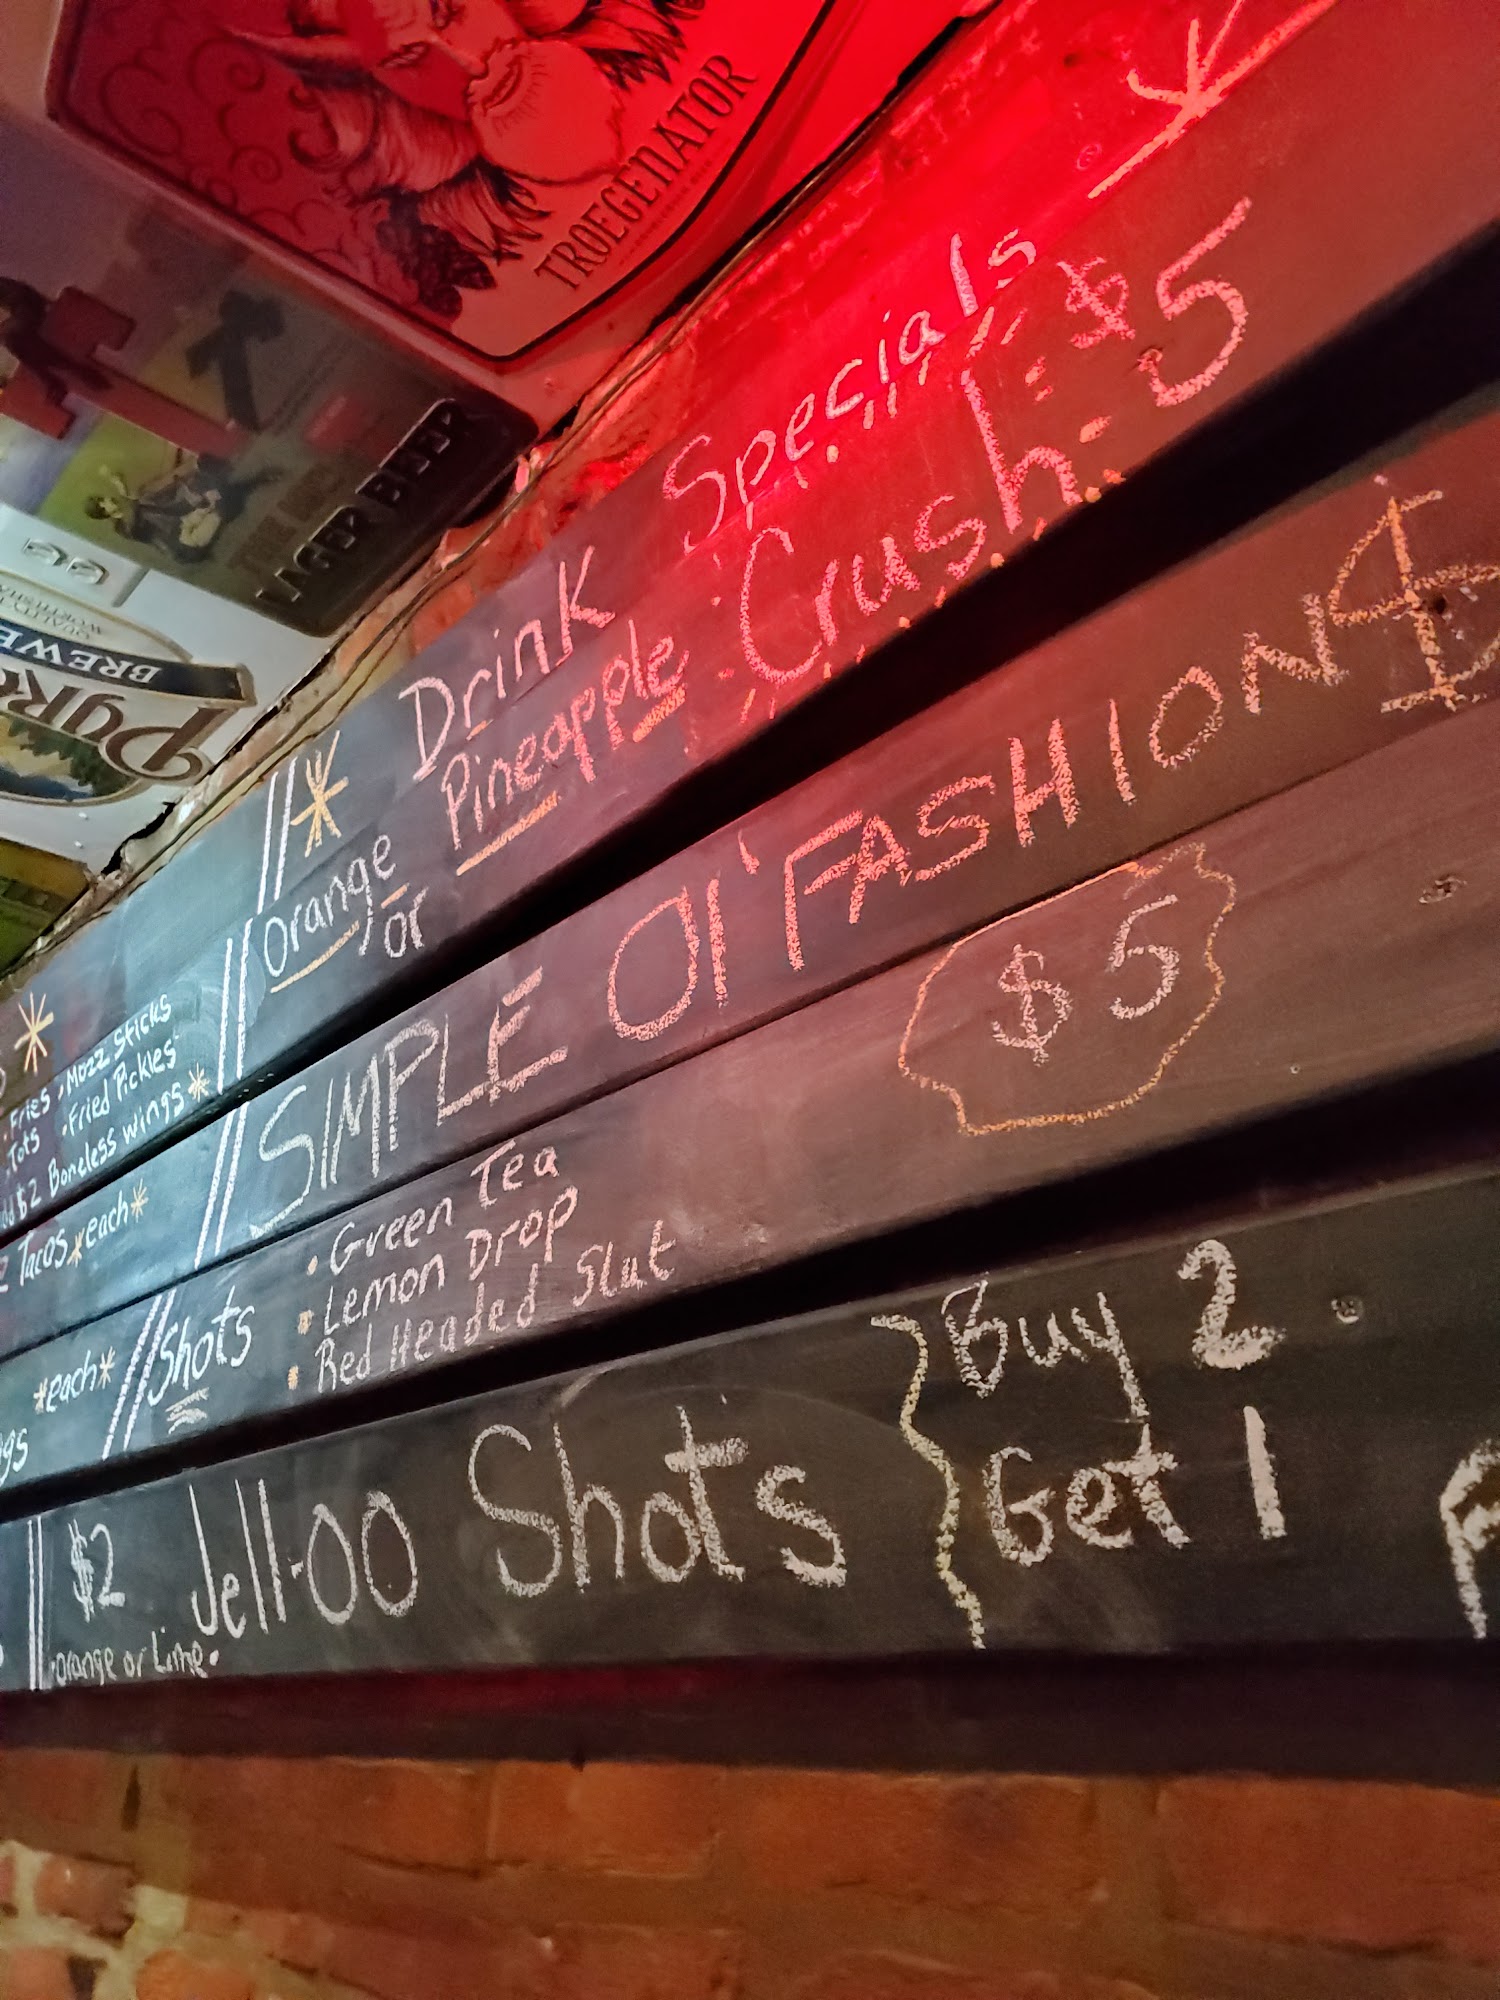 TROEGENATOR
LAGER BEER
BREWE
Drink Specials
Orange or Pineapple Crush: $5
SIMPLE Ol' FASHION $
$5
• Fries • Mozz Sticks
• Tots • Fried Pickles
add $2 Boneless wings *
Tacos * each *
* each *
Shots
• Green Tea
• Lemon Drop
• Red Headed Slut
$2 Jell-OO Shots
• orange or Lime •
Buy 2
Get 1